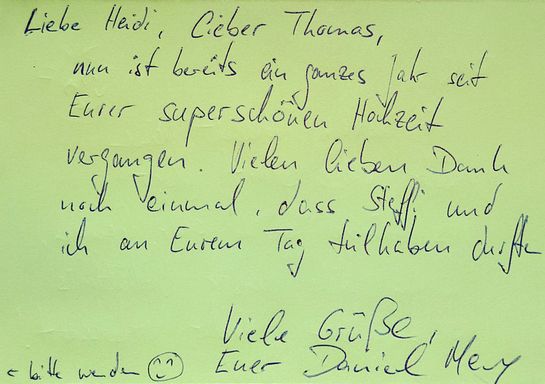 Liebe Heidi, Lieber Thomas,
nun ist bereits ein ganzes Jahr seit
Eurer superschönen Hochzeit
vergangen. Vielen lieben Dank
noch einmal, dass Steffi und
ich an Eurem Tag teilhaben durften
Viele Grüße,
Euer Daniel
← bitte wenden